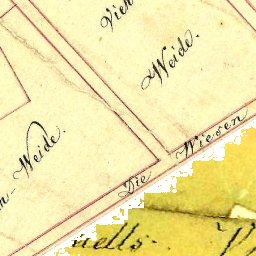 Vieh
Weide.
n-Weide.
Die Wiesen
uells